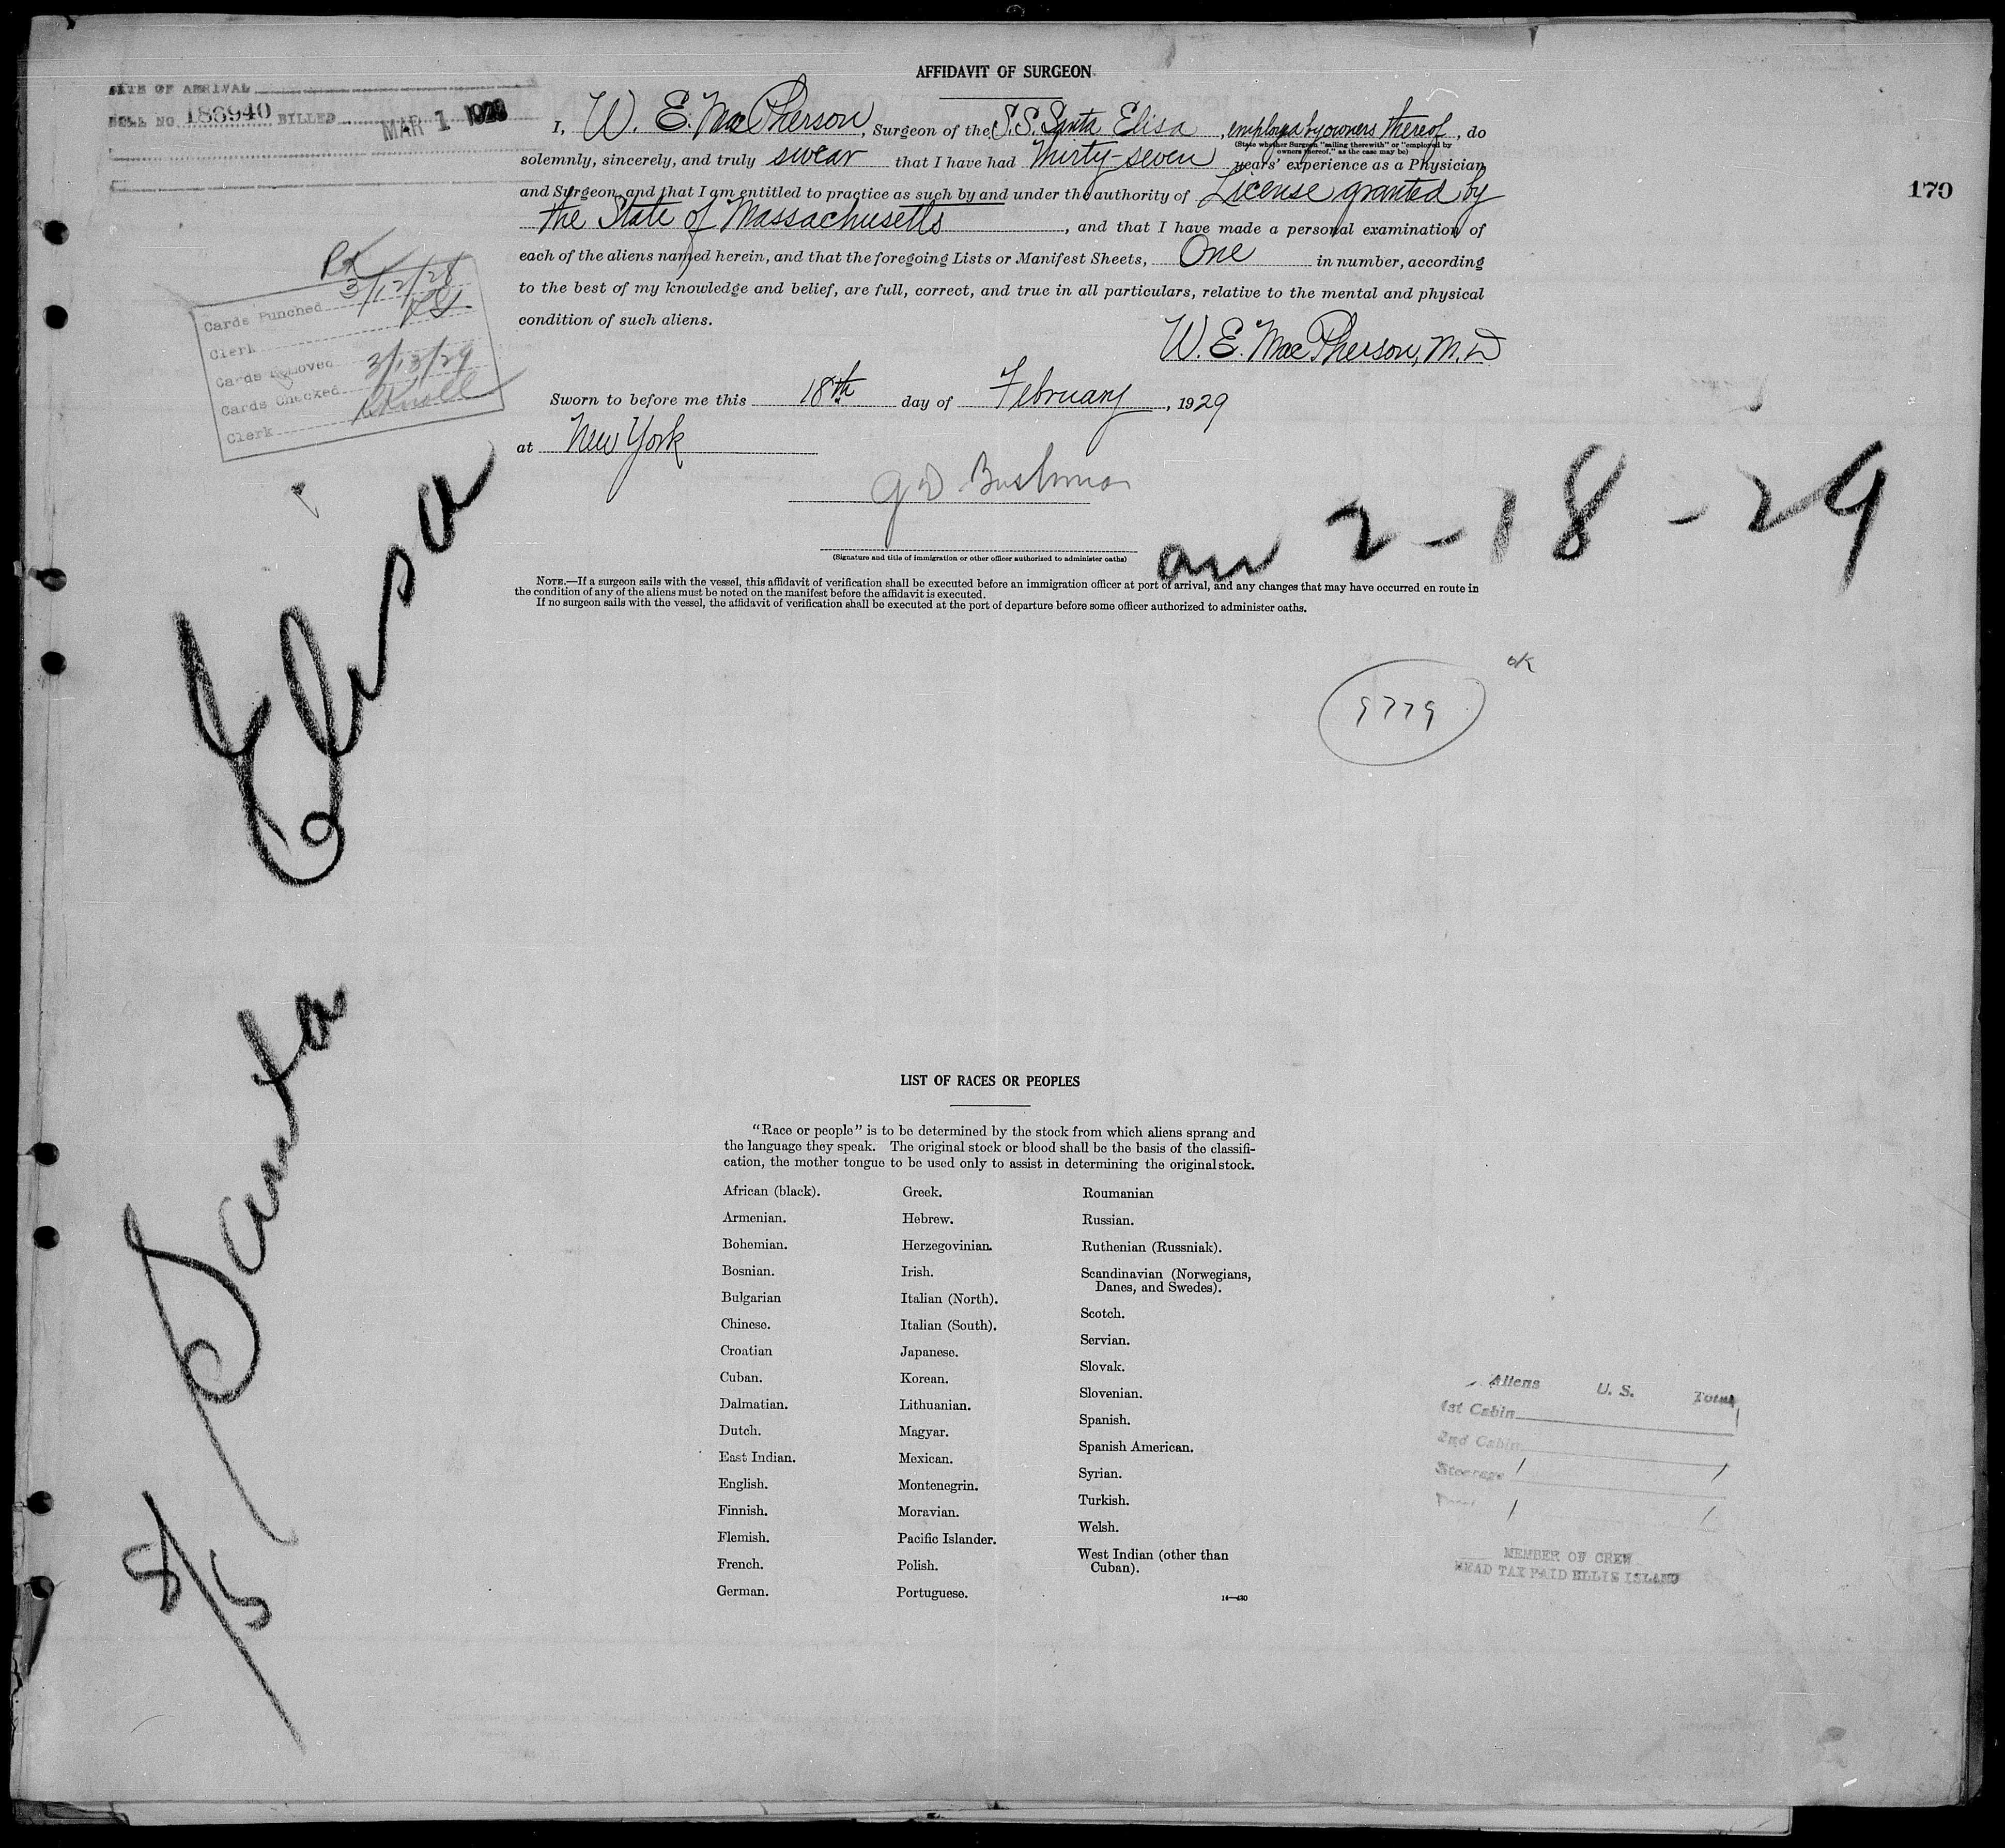 AFFIDAVIT OF SURGEON
DATE OF ARRIVAL
BILL NO. 186940 BILLED MAR 1 1929
170
I, W. E. MacPherson, Surgeon of the S.S. Santa Elisa, employed by owners thereof, do
(State whether Surgeon "sailing therewith" or "employed by
owners thereof," as the case may be)
solemnly, sincerely, and truly swear that I have had Thirty-seven years' experience as a Physician
and Surgeon, and that I am entitled to practice as such by and under the authority of License granted by
the State of Massachusetts, and that I have made a personal examination of
each of the aliens named herein, and that the foregoing Lists or Manifest Sheets, One in number, according
to the best of my knowledge and belief, are full, correct, and true in all particulars, relative to the mental and physical
condition of such aliens.
W. E. MacPherson, M.D
Sworn to before me this 18th day of February, 1929
at New York
(Signature and title of immigration or other officer authorized to administer oaths)
Cards Punched 3/12/28
Clerk
Cards Removed
Cards Checked 3/13/29
Clerk
2-18-29
NOTE.—If a surgeon sails with the vessel, this affidavit of verification shall be executed before an immigration officer at port of arrival, and any changes that may have occurred en route in
the condition of any of the aliens must be noted on the manifest before the affidavit is executed.
If no surgeon sails with the vessel, the affidavit of verification shall be executed at the port of departure before some officer authorized to administer oaths.
OK
9779
Santa Elisa
8/15
LIST OF RACES OR PEOPLES
"Race or people" is to be determined by the stock from which aliens sprang and
the language they speak. The original stock or blood shall be the basis of the classifi-
cation, the mother tongue to be used only to assist in determining the original stock.
African (black).
Armenian.
Bohemian.
Bosnian.
Bulgarian
Chinese.
Croatian
Cuban.
Dalmatian.
Dutch.
East Indian.
English.
Finnish.
Flemish.
French.
German.
Greek.
Hebrew.
Herzegovinian.
Irish.
Italian (North).
Italian (South).
Japanese.
Korean.
Lithuanian.
Magyar.
Mexican.
Montenegrin.
Moravian.
Pacific Islander.
Polish.
Portuguese.
Roumanian
Russian.
Ruthenian (Russniak).
Scandinavian (Norwegians,
Danes, and Swedes).
Scotch.
Servian.
Slovak.
Slovenian.
Spanish.
Spanish American.
Syrian.
Turkish.
Welsh.
West Indian (other than
Cuban).
14—430
Aliens U. S. Total
1st Cabin
2nd Cabin
Steerage 1 1
Total 1 1
MEMBER OF CREW
HEAD TAX PAID ELLIS ISLAND